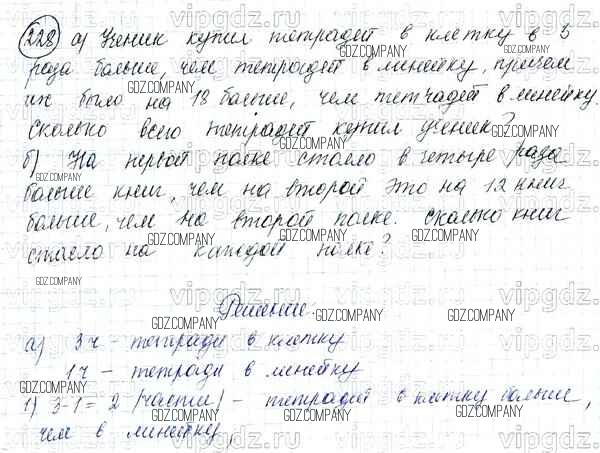 228 а) Ученик купил тетрадей в клетку в 3
раза больше, чем тетрадей в линейку, причем
их было на 18 больше, чем тетрадей в линейку.
Сколько всего тетрадей купил ученик?
б) На первой полке стояло в четыре раза
больше книг, чем на второй это на 12 книг
больше, чем на второй полке. Сколько книг
стояло на каждой полке?
Решение.
а) 3ч - тетради в клетку
1ч - тетради в линейку
1) 3-1= 2 (части) - тетрадей в клетку больше,
чем в линейку,